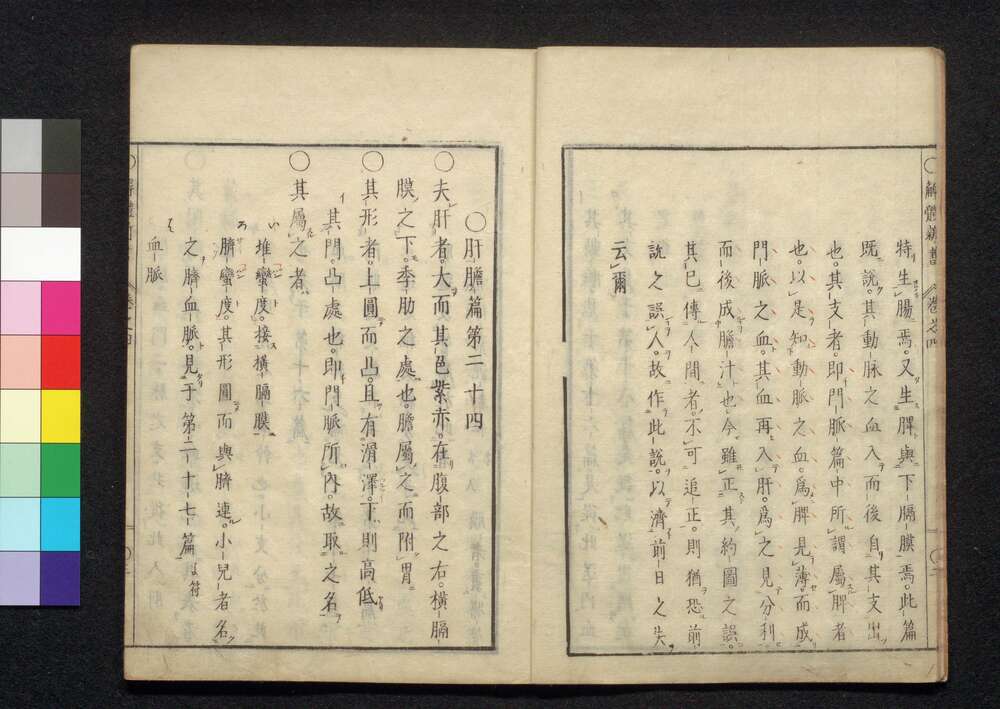 解體新書 卷之四
特生腸焉。又生脾與下膈膜焉。此篇
既說。其動脈之血入而後自其支出
也。其支者。即門脈篇中所謂屬脾者
也。以是知動脈之血。爲脾見薄。而成
門脈之血。其血再入肝。爲之見分利
而後成膽汁也。今雖正其約圖之誤。
其已傳人間者。不可追正。則猶恐前
說之誤人。故作此說。以濟前日之失
云爾
〇肝膽篇第二十四
〇夫肝者。大而其色紫赤。在腹部之右。橫膈
膜之下。季肋之處也。膽屬之而附胃
〇其形者。上圓而凸。且有滑澤。下則高低
其門。凸處也。即門脈所內。故取之名
〇其屬之者
い 堆蠻度。接橫膈膜
ろ 臍蠻度。其形圓而與臍連。小兒者名
之臍血脈。見于第二十七篇
は 血脈